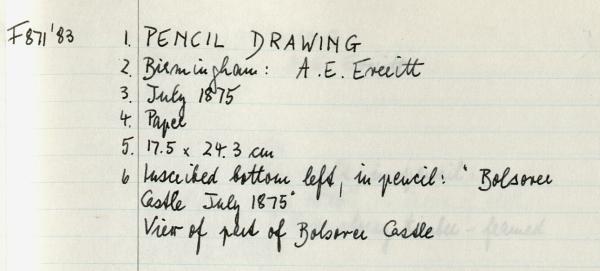 F871'83 1. PENCIL DRAWING
2. Birmingham: A.E. Everitt
3. July 1875
4. Paper
5. 17.5 x 24.3 cm
6 Inscribed bottom left, in pencil: "Bolsover
Castle July 1875"
View of part of Bolsover Castle
framed